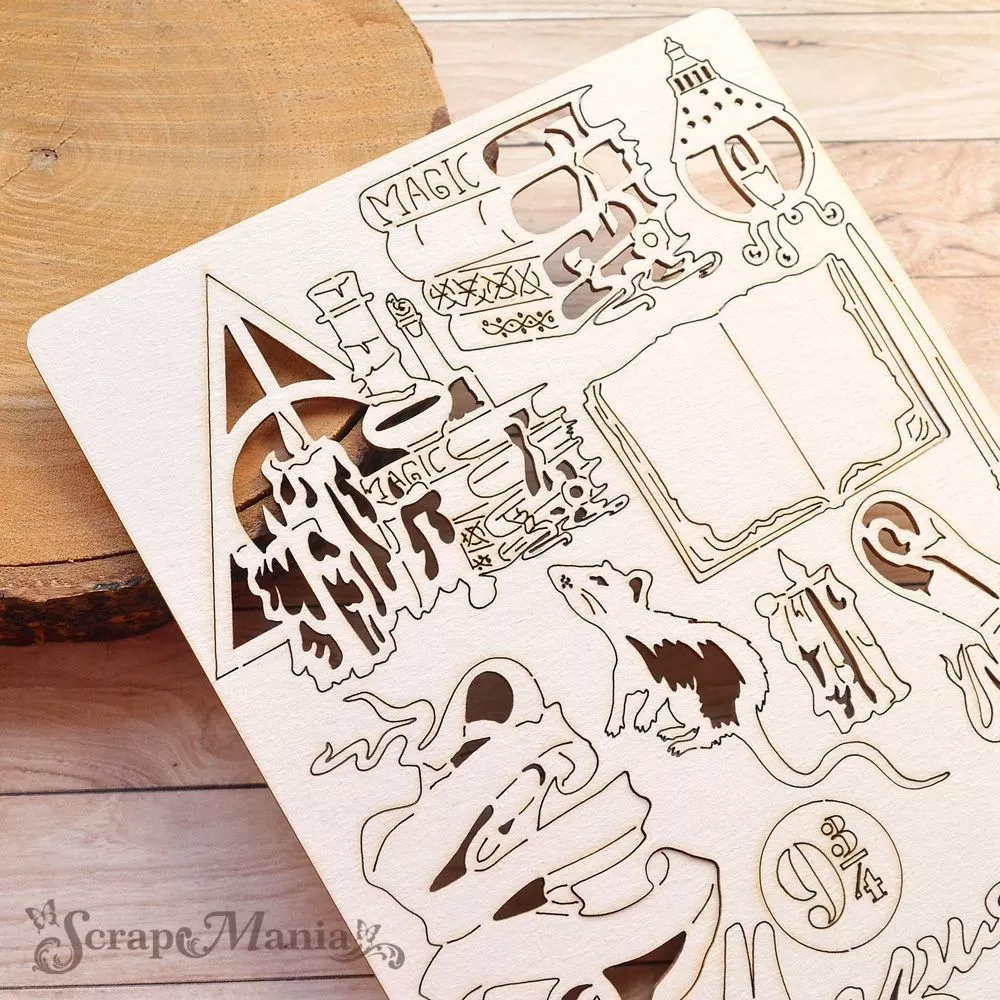 MAGIC
MAGIC
9 3/4
Scrap Mania